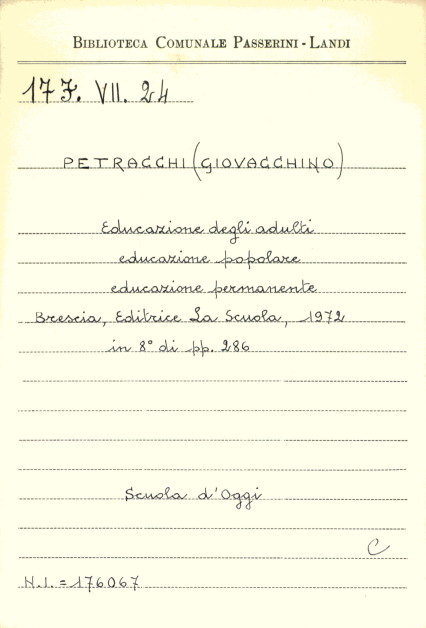 BIBLIOTECA COMUNALE PASSERINI - LANDI
17 F. VII. 24
PETRACCHI (GIOVACCHINO)
Educazione degli adulti
educazione popolare
educazione permanente
Brescia, Editrice La Scuola, 1972
in 8° di pp. 286
Scuola d'Oggi
C
N.I. = 176067